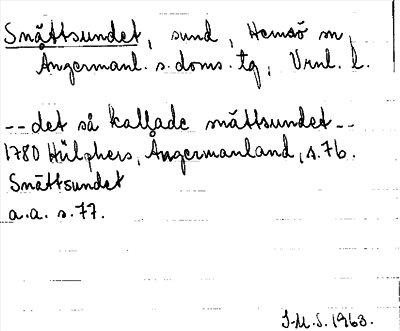 Snättsundet, sund, Hemsö sn,
Ångermanl. s. doms. tg, Vrnl. l.
-- det så kallade snättsundet --
1780 Hülphers, Ångermanland, s. 76.
Snättsundet
a.a. s. 77.
J.M.S. 1963.